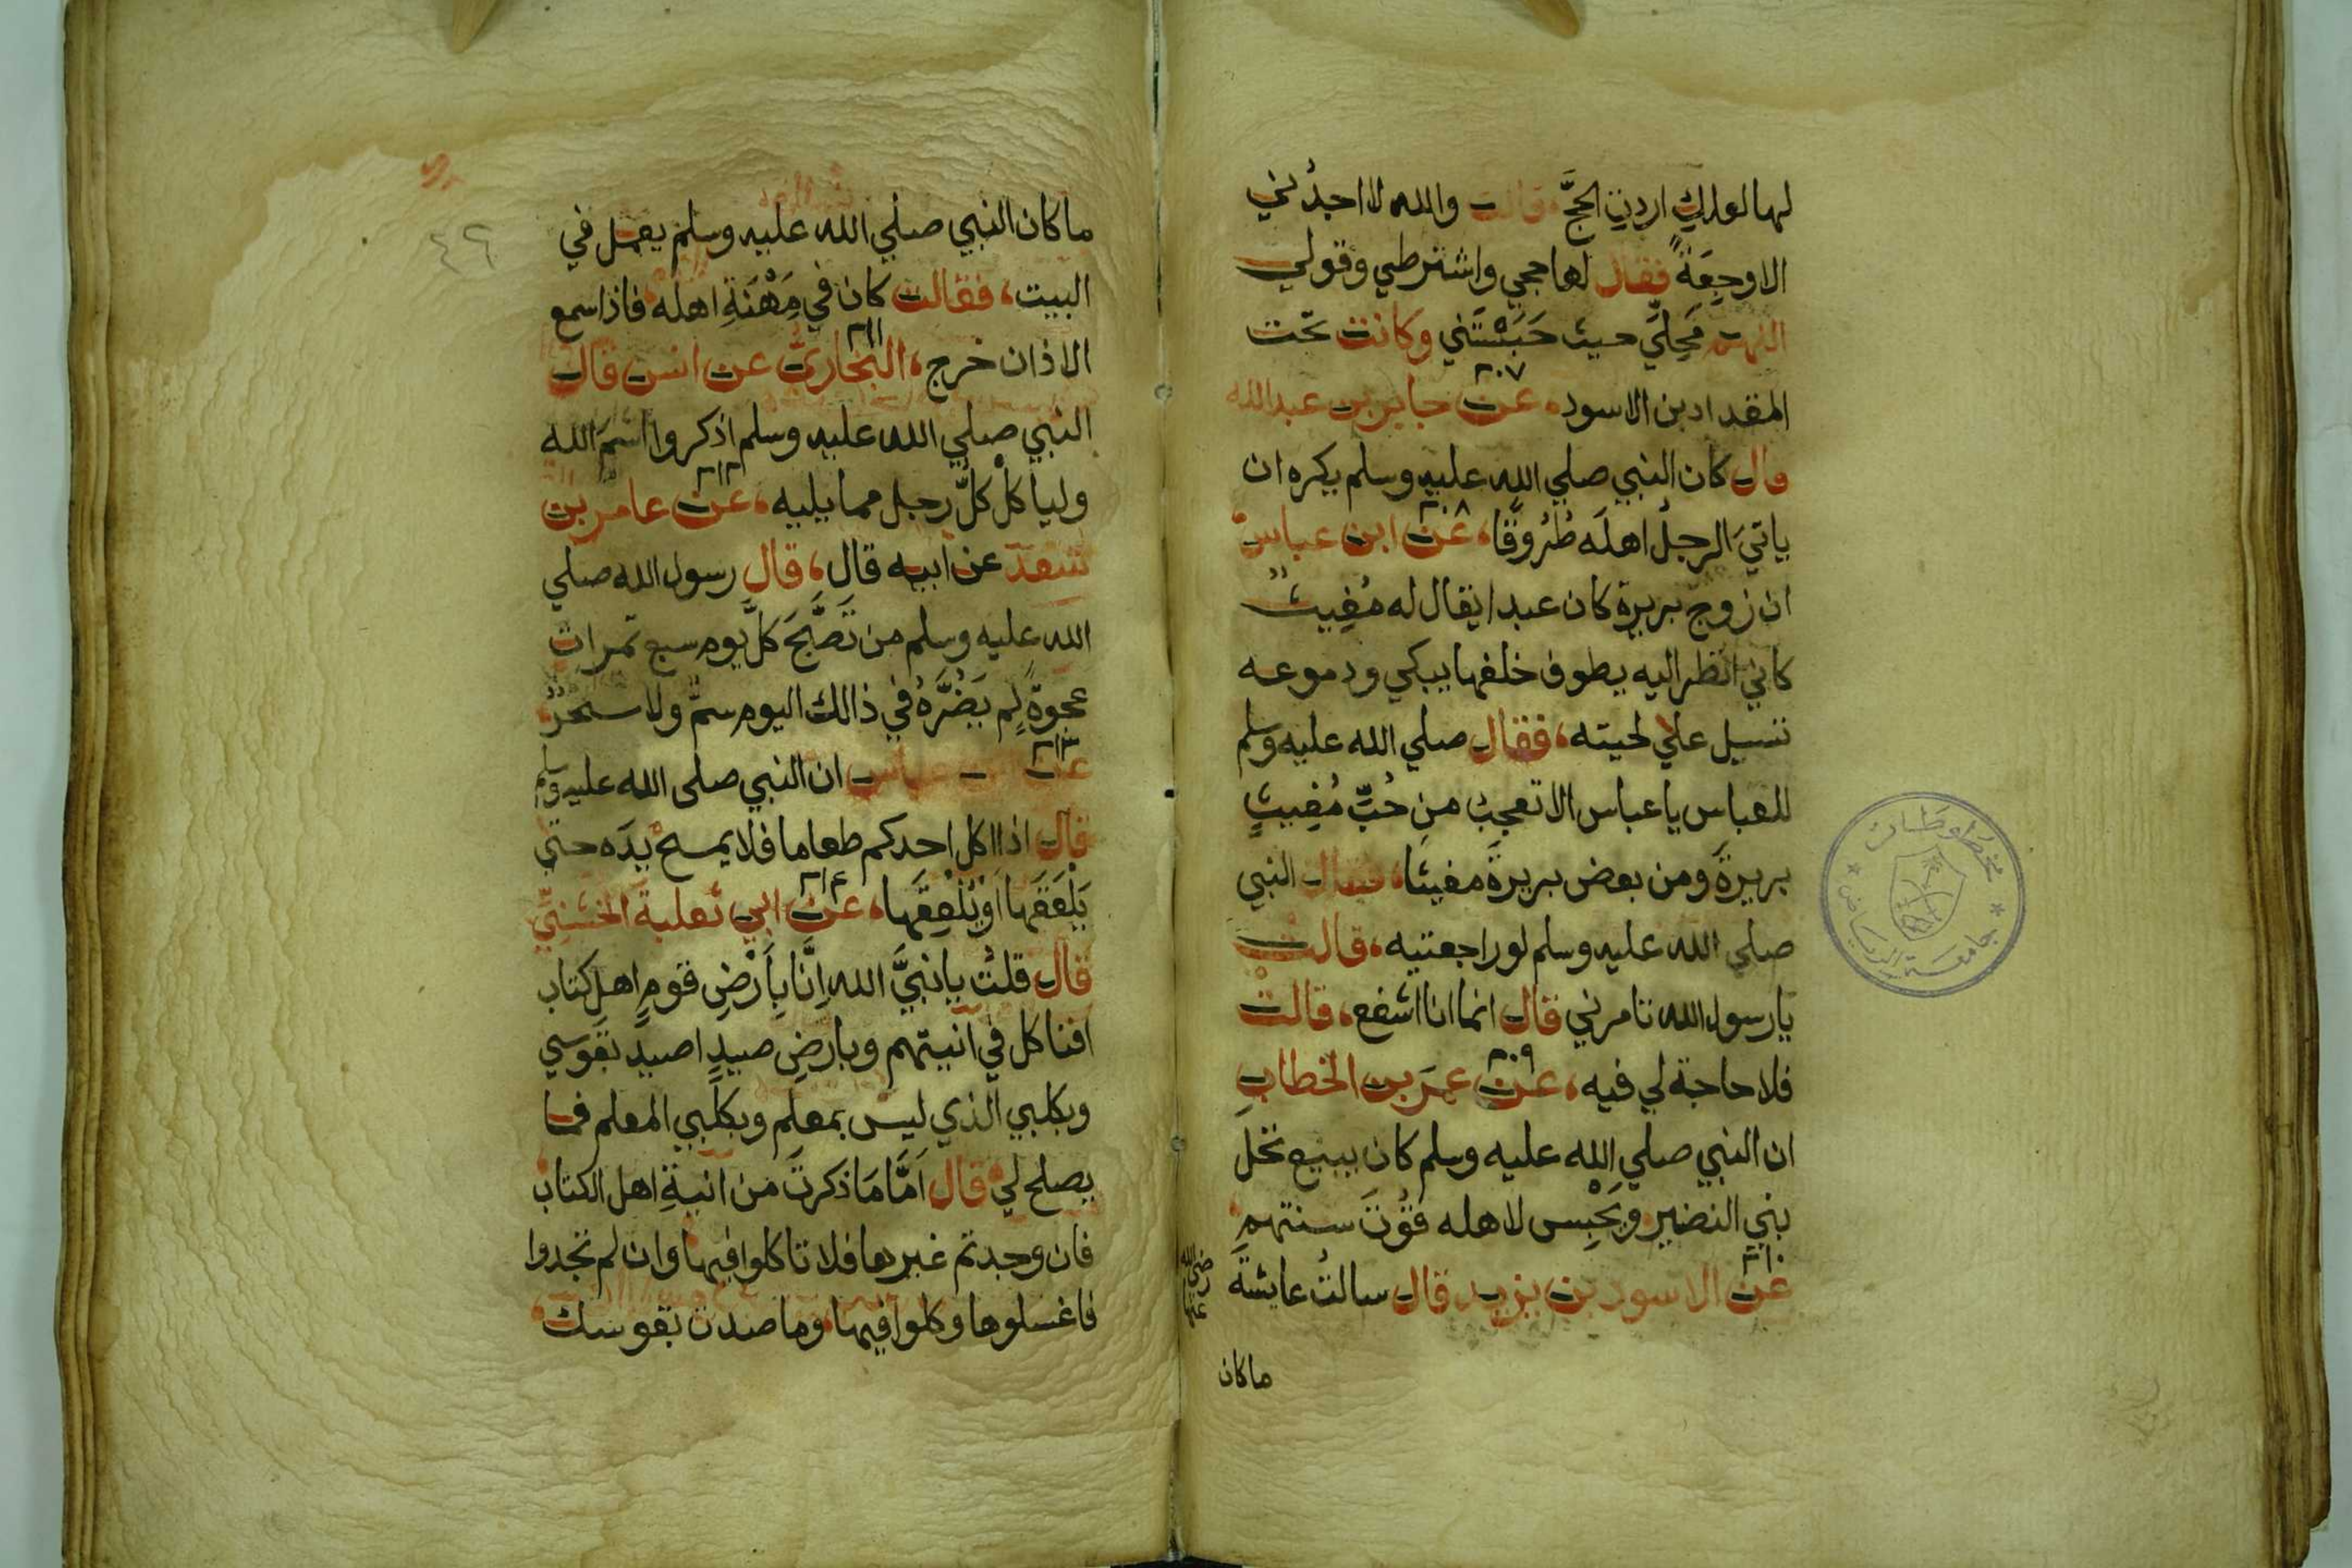 لها لعلك اردتِ الحجَّ قالت والله لا اجدُني
الا وجِعَةً فقال لها حجي واشترطي وقولي
اللهم مَحِلّي حيث حَبَسْتَني وكانت تحت
المقداد بن الاسود عن جابر بن عبدالله
٣٠٧
قال كان النبي صلي الله عليه وسلم يكره ان
ياتيَ الرجلُ اهلَه طُرُوقًا عن ابن عباس
٣٠٨
ان زوج بريرة كان عبدا يقال له مُغِيثٌ
كاني انظر اليه يطوف خلفها يبكي ودموعه
تسيل علي لحيته فقال صلي الله عليه وسلم
للعباس يا عباس الا تعجب من حُبِّ مُغِيثٍ
بريرةَ ومن بعض بريرةَ مغيثًا فقال النبي
صلي الله عليه وسلم لو راجعتيه قالت
يا رسول الله تامرني قال انما انا اشفع قالت
فلا حاجة لي فيه عن عمرَ بن الخطابِ
٣٠٩
ان النبي صلي الله عليه وسلم كان يبيع نخل
بني النضير ويَحْبِس لاهله قُوْتَ سنتهم
عن الاسود بن يزيد قال سالتُ عايشةَ
٣١٠
رضي الله عنها
ما كان
٤٦
ما كان النبي صلي الله عليه وسلم يعمل في
البيت فقالت كان في مِهْنَةِ اهله فاذا سمع
الاذان خرج البخاريُّ عن انس قال
٣١١
النبي صلي الله عليه وسلم اذكروا اسمَ الله
ولياكلْ كلُّ رجل مما يليه عن عامر بن
٣١٢
سعد عن ابيه قال قال رسول الله صلي
الله عليه وسلم من تَصَبَّحَ كلَّ يوم سبع تمرات
عجوةٍ لم يَضُرَّهُ في ذالك اليوم سمٌّ ولا سحرٌ
عن عباس ان النبي صلى الله عليه وسلم
٣١٣
قال اذا اكل احدكم طعاما فلا يمسح يدَه حتي
يَلْعَقَها اَوْ يُلْعِقَها عن ابي ثعلبةَ الخشنِيِّ
٣١٤
قال قلتُ يا نبيَّ الله اِنَّا بِاَرْضِ قومٍ اهلِ كتاب
افناكل في انيتهم وبارضِ صيدٍ اصيد بقوسي
وبكلبي الذي ليس بمعلم وبكلبي المعلم فما
يصلح لي قال اَمَّا مَا ذكرتَ من انيةِ اهل الكتاب
فان وجدتم غيرها فلا تاكلوا فيها وان لم تجدوا
فاغسلوها وكلوا فيها وما صدت بقوسك
مخطوطات
جامعة الرياض